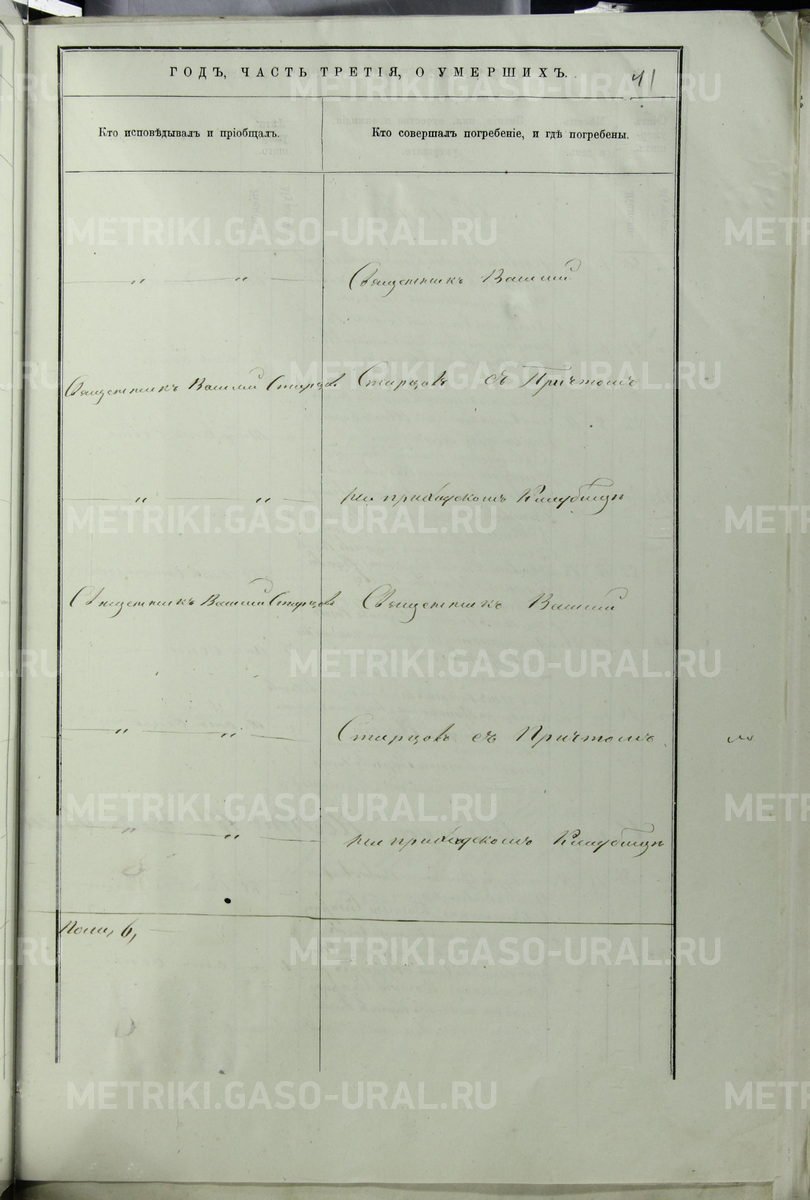 ГОДЪ, ЧАСТЬ ТРЕТІЯ, О УМЕРШИХЪ. 41
Кто исповѣдывалъ и пріобщалъ.
Кто совершалъ погребеніе, и гдѣ погребены.
METRIKI.GASO-URAL.RU
„ „ Священникъ Василій
Священникъ Василий Старцовъ Старцовъ съ Причтомъ
„ „ на приходскомъ Кладбищѣ
Священникъ Василій Старцовъ Священникъ Василій
„ „ Старцовъ съ Причтомъ
„ „ на приходскомъ Кладбищѣ
6,